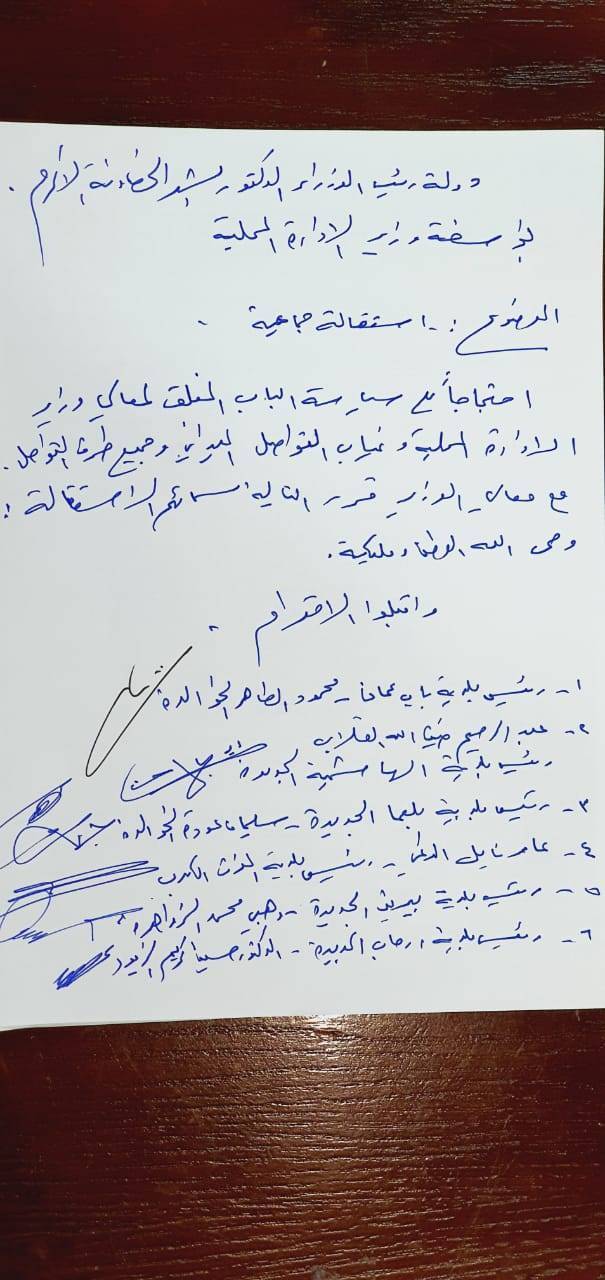 دولة رئيس الوزراء الدكتور بشر الخصاونة الأكرم .
بواسطة وزير الادارة المحلية
الموضوع :- استقالة جماعية .
احتجاجاً على سياسة الباب المغلق لمعالي وزير
الادارة المحلية وغياب التواصل الميداني وجميع طرق التواصل .
مع معالي الوزير قرر التالية اسمائهم الاستقالة :
وحمى الله الوطن ومليكه .
واقبلوا الاحترام .
١- رئيس بلدية باب عمان - محمود الطاهر الخوالدة
٢- عبد الرحيم ضيف الله القلاب
رئيس بلدية الهاشمية الجديدة
٣- رئيس بلدية بلعما الجديدة - سليمان عودة الخوالدة
٤- عامر نايل - رئيس بلدية
٥- رئيس بلدية بيرين الجديدة - وهبي محمد الزواهرة
٦- رئيس بلدية ارحاب الجديدة - الدكتور حسين كريم الزيود